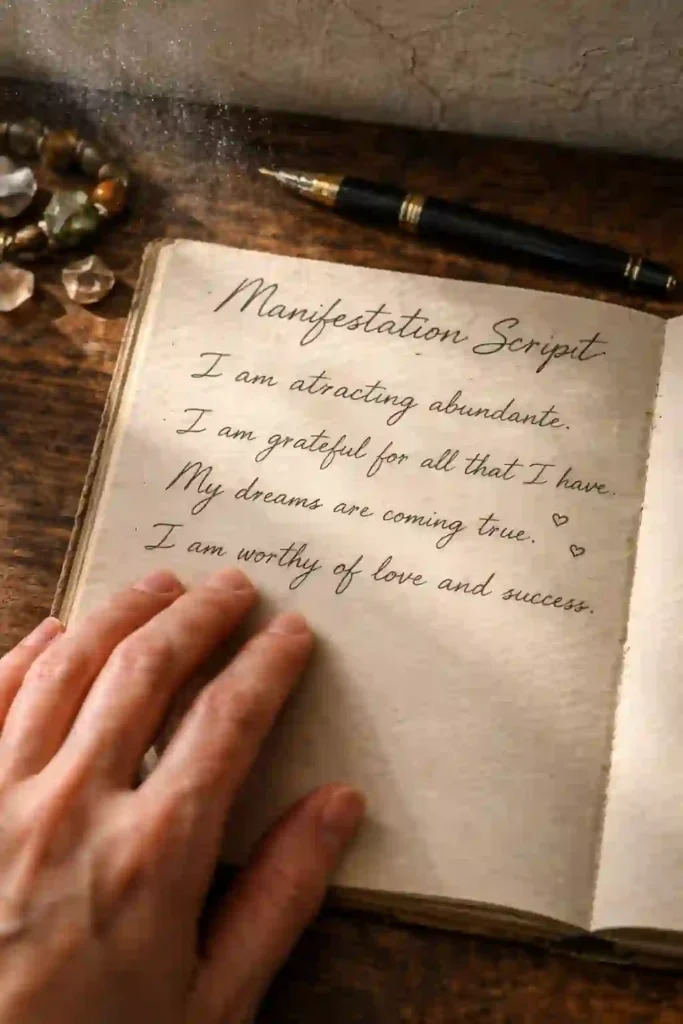 Manifestation Script
I am atracting abundante.
I am grateful for all that I have.
My dreams are coming true.
I am worthy of love and success.